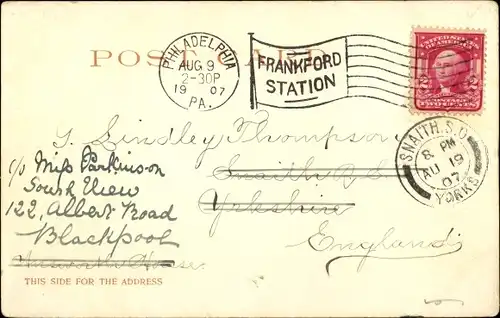 POST CARD
PHILADELPHIA
AUG 9
2-30P
1907
PA.
FRANKFORD
STATION
SNAITH.S.O.
8 PM
AU 19
07
YORKS
J. Lindley Thompson
Snaith
Yorkshire
England
c/o Miss Parkinson
South View
122, Albert Road
Blackpool
House.
THIS SIDE FOR THE ADDRESS